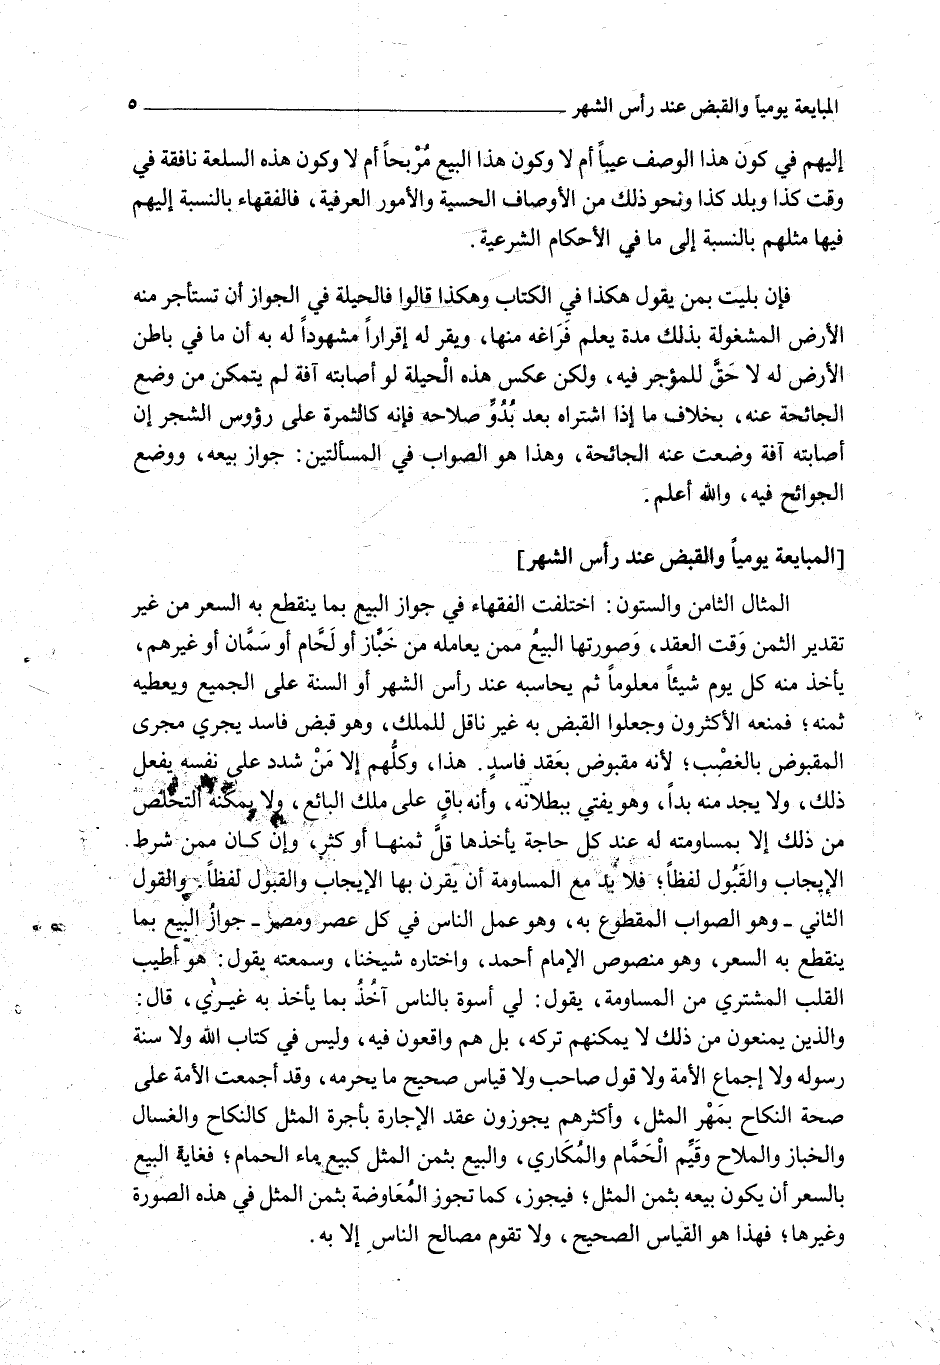 المبايعة يومياً والقبض عند رأس الشهر ٥
إليهم في كون هذا الوصف عيباً أم لا وكون هذا البيع مُرْبحاً أم لا وكون هذه السلعة نافقة في
وقت كذا وبلد كذا ونحو ذلك من الأوصاف الحسية والأمور العرفية، فالفقهاء بالنسبة إليهم
فيها مثلهم بالنسبة إلى ما في الأحكام الشرعية.
فإن بليت بمن يقول هكذا في الكتاب وهكذا قالوا فالحيلة في الجواز أن تستأجر منه
الأرض المشغولة بذلك مدة يعلم فَرَاغه منها، ويقر له إقراراً مشهوداً له به أن ما في باطن
الأرض له لا حَقَّ للمؤجر فيه، ولكن عكس هذه الْحيلة لو أصابته آفة لم يتمكن من وضع
الجائحة عنه، بخلاف ما إذا اشتراه بعد بُدُوِّ صلاحه فإنه كالثمرة على رؤوس الشجر إن
أصابته آفة وضعت عنه الجائحة، وهذا هو الصواب في المسألتين: جواز بيعه، ووضع
الجوائح فيه، والله أعلم.
[المبايعة يومياً والقبض عند رأس الشهر]
المثال الثامن والستون: اختلفت الفقهاء في جواز البيع بما ينقطع به السعر من غير
تقدير الثمن وَقت العقد، وَصورتها البيعُ ممن يعامله من خَبَّاز أو لَحَّام أو سَمَّان أو غيرهم،
يأخذ منه كل يوم شيئاً معلوماً ثم يحاسبه عند رأس الشهر أو السنة على الجميع ويعطيه
ثمنه؛ فمنعه الأكثرون وجعلوا القبض به غير ناقل للملك، وهو قبض فاسد يجري مجرى
المقبوض بالغصْب؛ لأنه مقبوض بعَقد فاسدٍ. هذا، وكلُّهم إلا مَنْ شدد على نفسه يفعل
ذلك، ولا يجد منه بداً، وهو يفتي ببطلانه، وأنه باقٍ على ملك البائع، ولا يمكنه التخلص
من ذلك إلا بمساومته له عند كل حاجة يأخذها قلَّ ثمنها أو كثر، وإن كان ممن شرط
الإيجاب والقَبُول لفظاً؛ فلا بُدَّ مع المساومة أن يقرن بها الإيجاب والقبول لفظاً. والقول
الثاني ـ وهو الصواب المقطوع به، وهو عمل الناس في كل عصر ومصر ـ جوازُ البيع بما
ينقطع به السعر، وهو منصوص الإمام أحمد، واختاره شيخنا، وسمعته يقول: هو أطيب
القلب المشتري من المساومة، يقول: لي أسوة بالناس آخُذُ بما يأخذ به غيري، قال:
والذين يمنعون من ذلك لا يمكنهم تركه، بل هم واقعون فيه، وليس في كتاب الله ولا سنة
رسوله ولا إجماع الأمة ولا قول صاحب ولا قياس صحيح ما يحرمه، وقد أجمعت الأمة على
صحة النكاح بمَهْر المثل، وأكثرهم يجوزون عقد الإجارة بأجرة المثل كالنكاح والغسال
والخباز والملاح وقَيِّم الْحَمَّام والمُكَاري، والبيع بثمن المثل كبيع ماء الحمام؛ فغاية البيع
بالسعر أن يكون بيعه بثمن المثل؛ فيجوز، كما تجوز المُعَاوضة بثمن المثل في هذه الصورة
وغيرها؛ فهذا هو القياس الصحيح، ولا تقوم مصالح الناس إلا به.